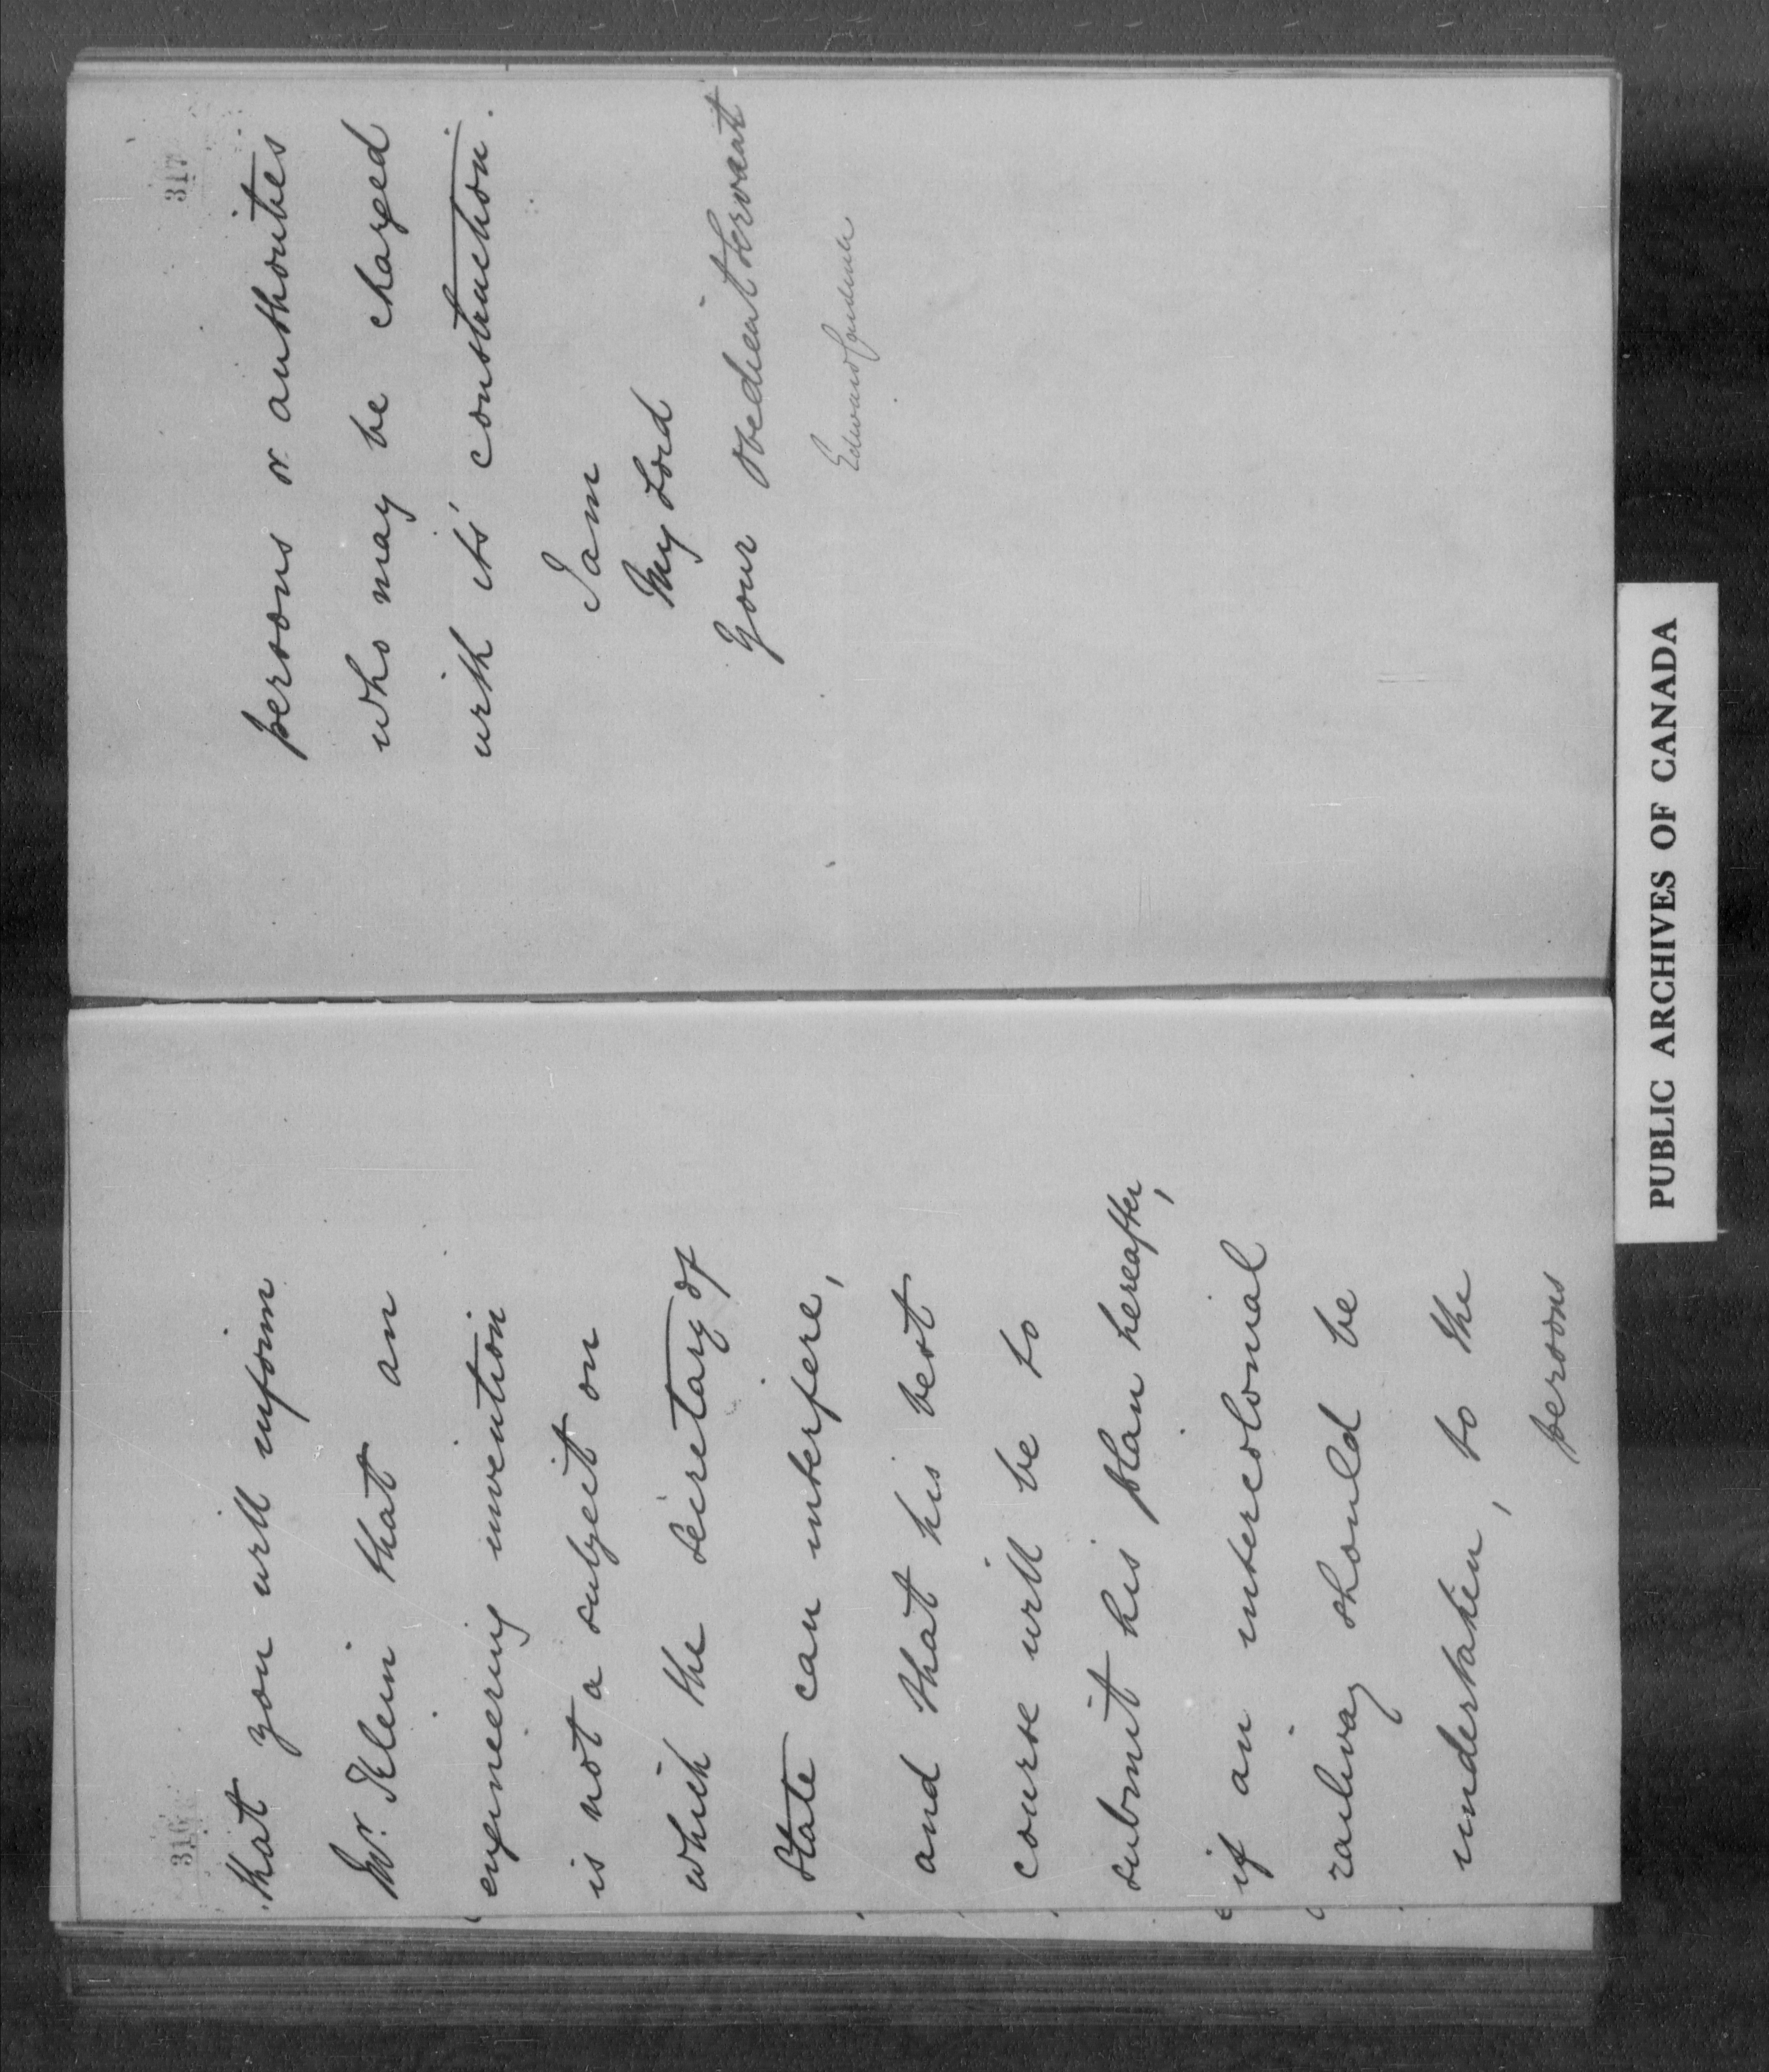 316
that you will inform
Mr. Klein that an
engineering invention
is not a subject on
which the Secretary of
State can interfere,
and that his best
course will be to
submit his plan hereafter,
if an intercolonial
railway should be
undertaken, to the
persons
317
persons or authorities
who may be charged
with its' construction.
I am
My Lord
Your obedient Servant
Edward Cardwell
PUBLIC ARCHIVES OF CANADA